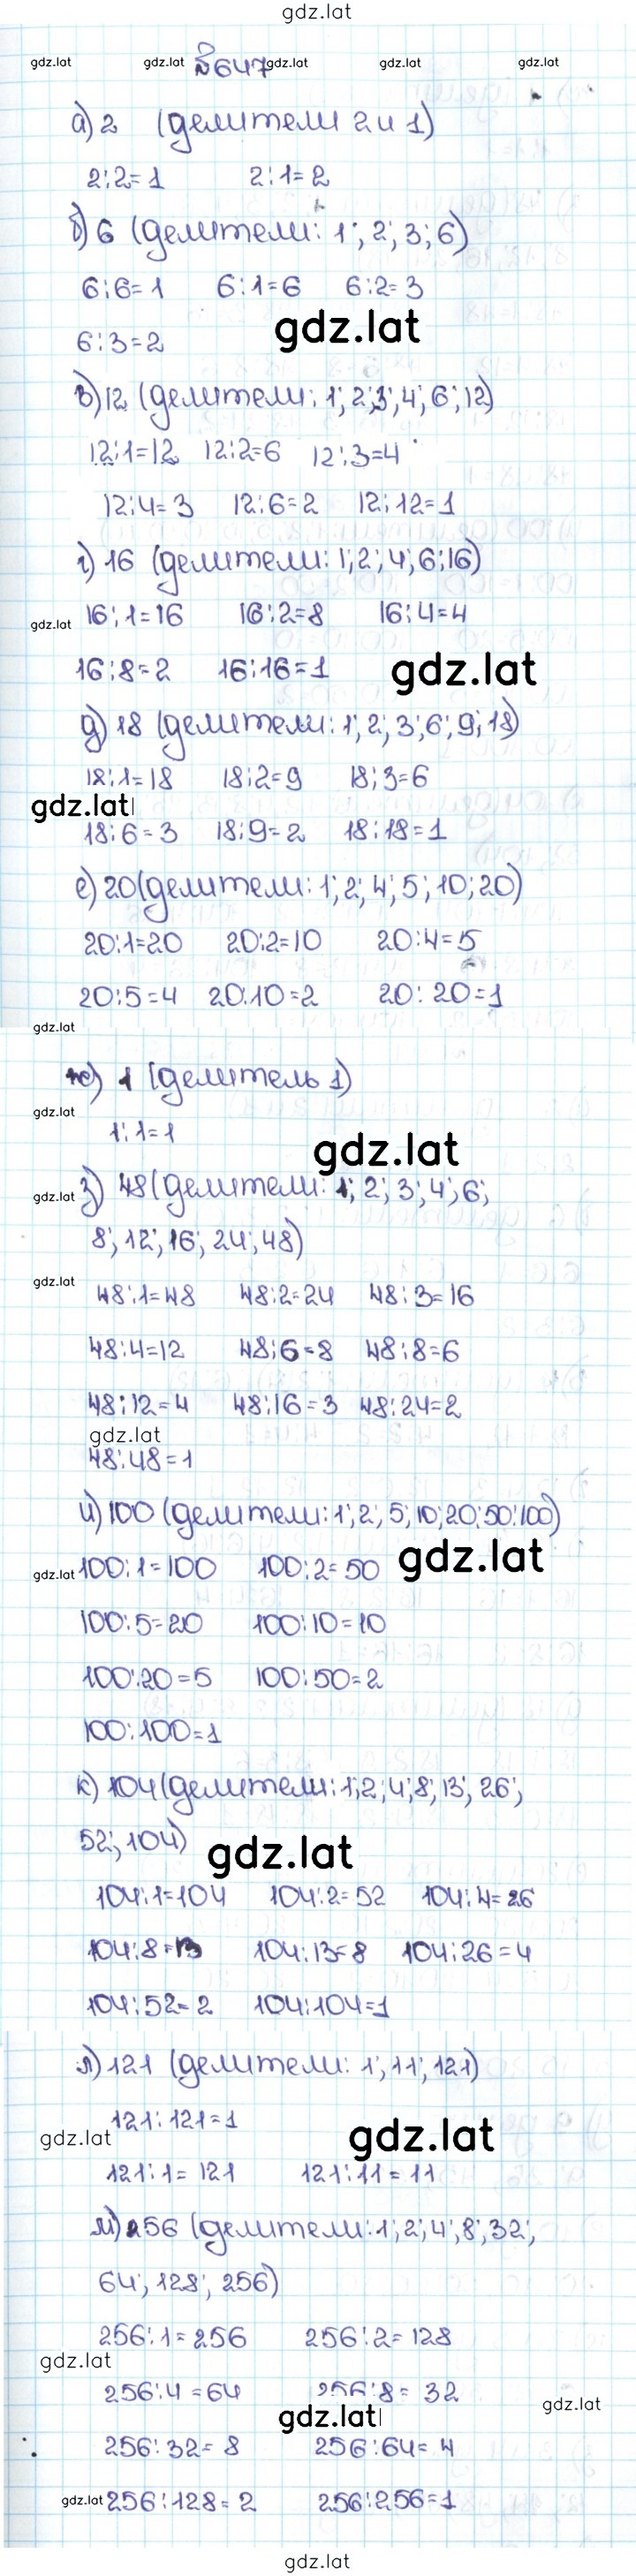 gdz.lat
gdz.lat gdz.lat №647 gdz.lat gdz.lat gdz.lat
а) 2 (делители 2 и 1)
2:2=1 2:1=2
б) 6 (делители: 1; 2; 3; 6)
6:6=1 6:1=6 6:2=3
gdz.lat
6:3=2
в) 12 (делители: 1; 2; 3; 4; 6; 12)
12:1=12 12:2=6 12:3=4
12:4=3 12:6=2 12:12=1
г) 16 (делители: 1; 2; 4; 6; 16)
gdz.lat 16:1=16 16:2=8 16:4=4
16:8=2 16:16=1 gdz.lat
д) 18 (делители: 1; 2; 3; 6; 9; 18)
18:1=18 18:2=9 18:3=6
gdz.lat
18:6=3 18:9=2 18:18=1
е) 20 (делители: 1; 2; 4; 5; 10; 20)
20:1=20 20:2=10 20:4=5
20:5=4 20:10=2 20:20=1
gdz.lat
ж) 1 (делитель 1)
gdz.lat
1:1=1
gdz.lat
gdz.lat з) 48 (делители: 1; 2; 3; 4; 6;
8; 12; 16; 24; 48)
gdz.lat
48:1=48 48:2=24 48:3=16
48:4=12 48:6=8 48:8=6
48:12=4 48:16=3 48:24=2
gdz.lat
48:48=1
и) 100 (делители: 1; 2; 5; 10; 20; 50; 100)
gdz.lat 100:1=100 100:2=50 gdz.lat
100:5=20 100:10=10
100:20=5 100:50=2
100:100=1
к) 104 (делители: 1; 2; 4; 8; 13; 26;
52; 104) gdz.lat
104:1=104 104:2=52 104:4=26
104:8=13 104:13=8 104:26=4
104:52=2 104:104=1
л) 121 (делители: 1; 11; 121)
121:121=1
gdz.lat gdz.lat
121:1=121 121:11=11
м) 256 (делители: 1; 2; 4; 8; 32;
64; 128; 256)
256:1=256 256:2=128
gdz.lat
256:4=64 256:8=32
gdz.lat
gdz.lat
256:32=8 256:64=4
gdz.lat 256:128=2 256:256=1
gdz.lat